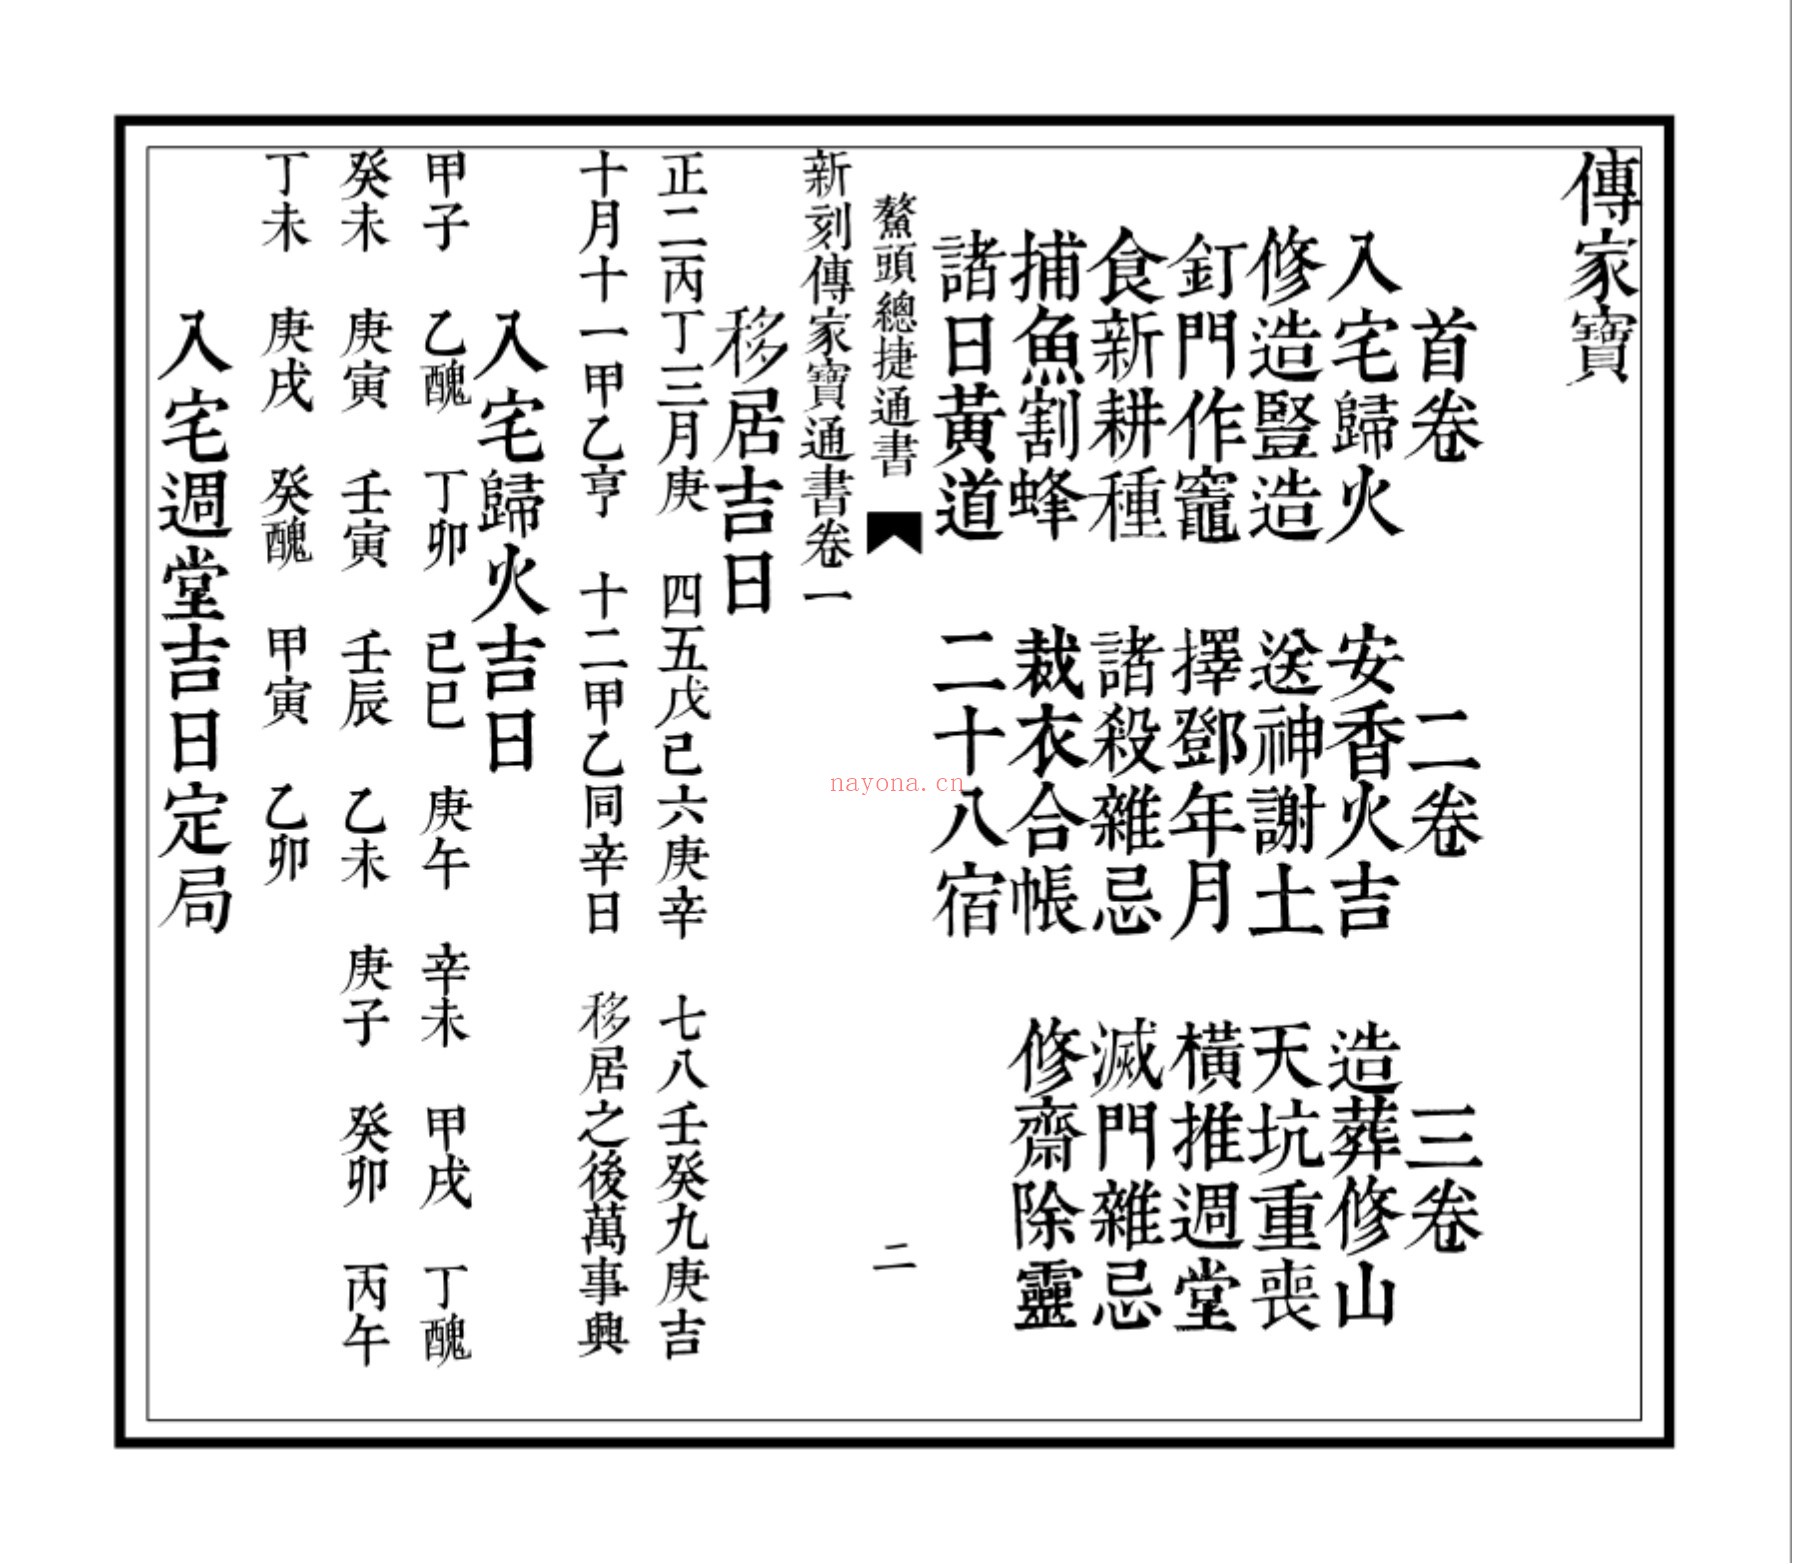 傳家寶
首卷 二卷 三卷
入宅歸火 安香火吉 造葬修山
修造豎造 送神謝土 天坑重喪
釘門作竈 擇鄧年月 橫推週堂
食新耕種 諸殺雜忌 滅門雜忌
捕魚割蜂 裁衣合帳 修齋除靈
諸日黃道 二十八宿
鰲頭總捷通書 二
新刻傳家寶通書卷一
移居吉日
正二丙丁三月庚 四五戊己六庚辛 七八壬癸九庚吉
十月十一甲乙亨 十二甲乙同辛日 移居之後萬事興
入宅歸火吉日
甲子 乙醜 丁卯 己巳 庚午 辛未 甲戌 丁醜
癸未 庚寅 壬寅 壬辰 乙未 庚子 癸卯 丙午
丁未 庚戌 癸醜 甲寅 乙卯
入宅週堂吉日定局
nayona.cn